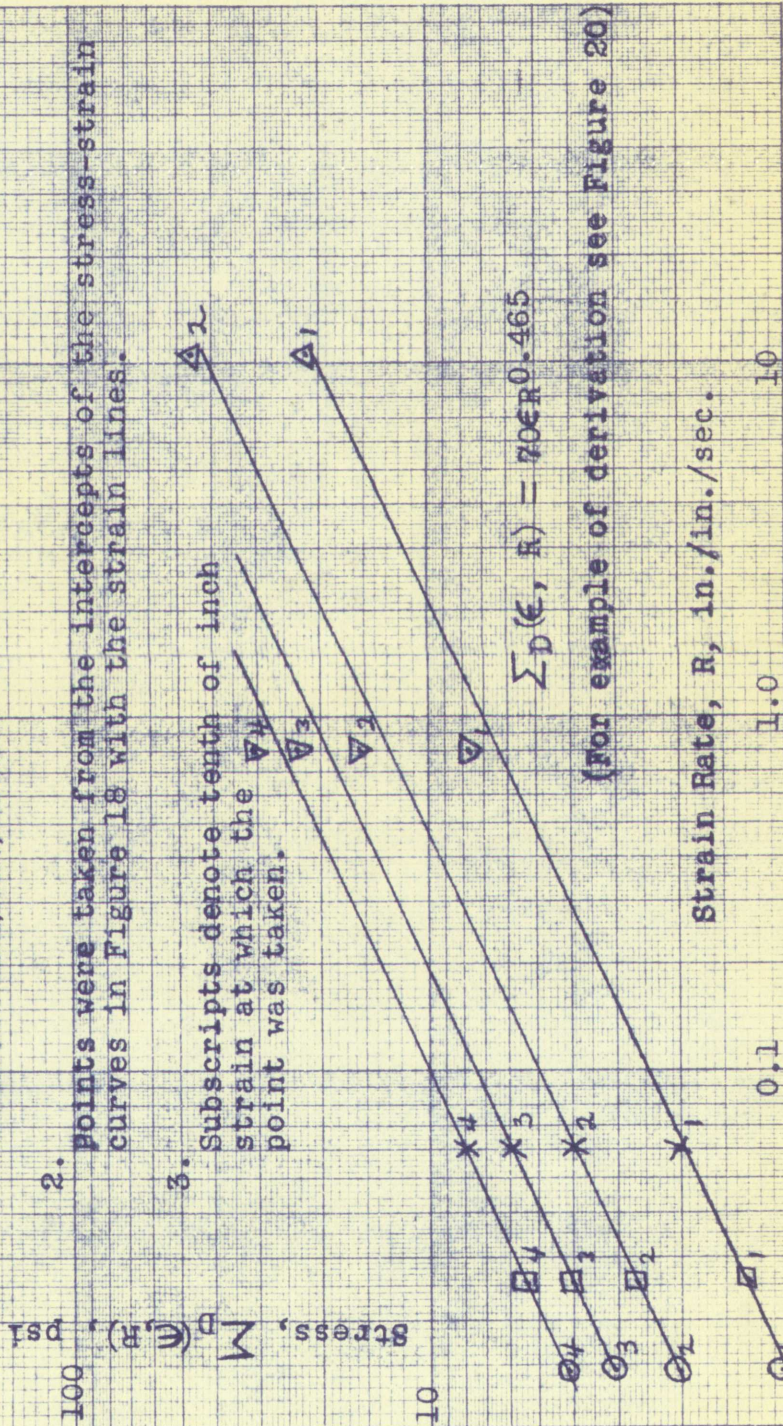 2. Points were taken from the intercepts of the stress-strain
curves in Figure 18 with the strain lines.
3. Subscripts denote tenth of inch
strain at which the
point was taken.
Stress, Σ_D(ϵ,R), psi
100
10
2
1
4
3
2
1
4
3
2
1
4
3
2
1
4
3
2
Σ_D(ϵ, R) = 70ϵR^0.465
(For example of derivation see Figure 20)
Strain Rate, R, in./in./sec.
0.1
1.0
10